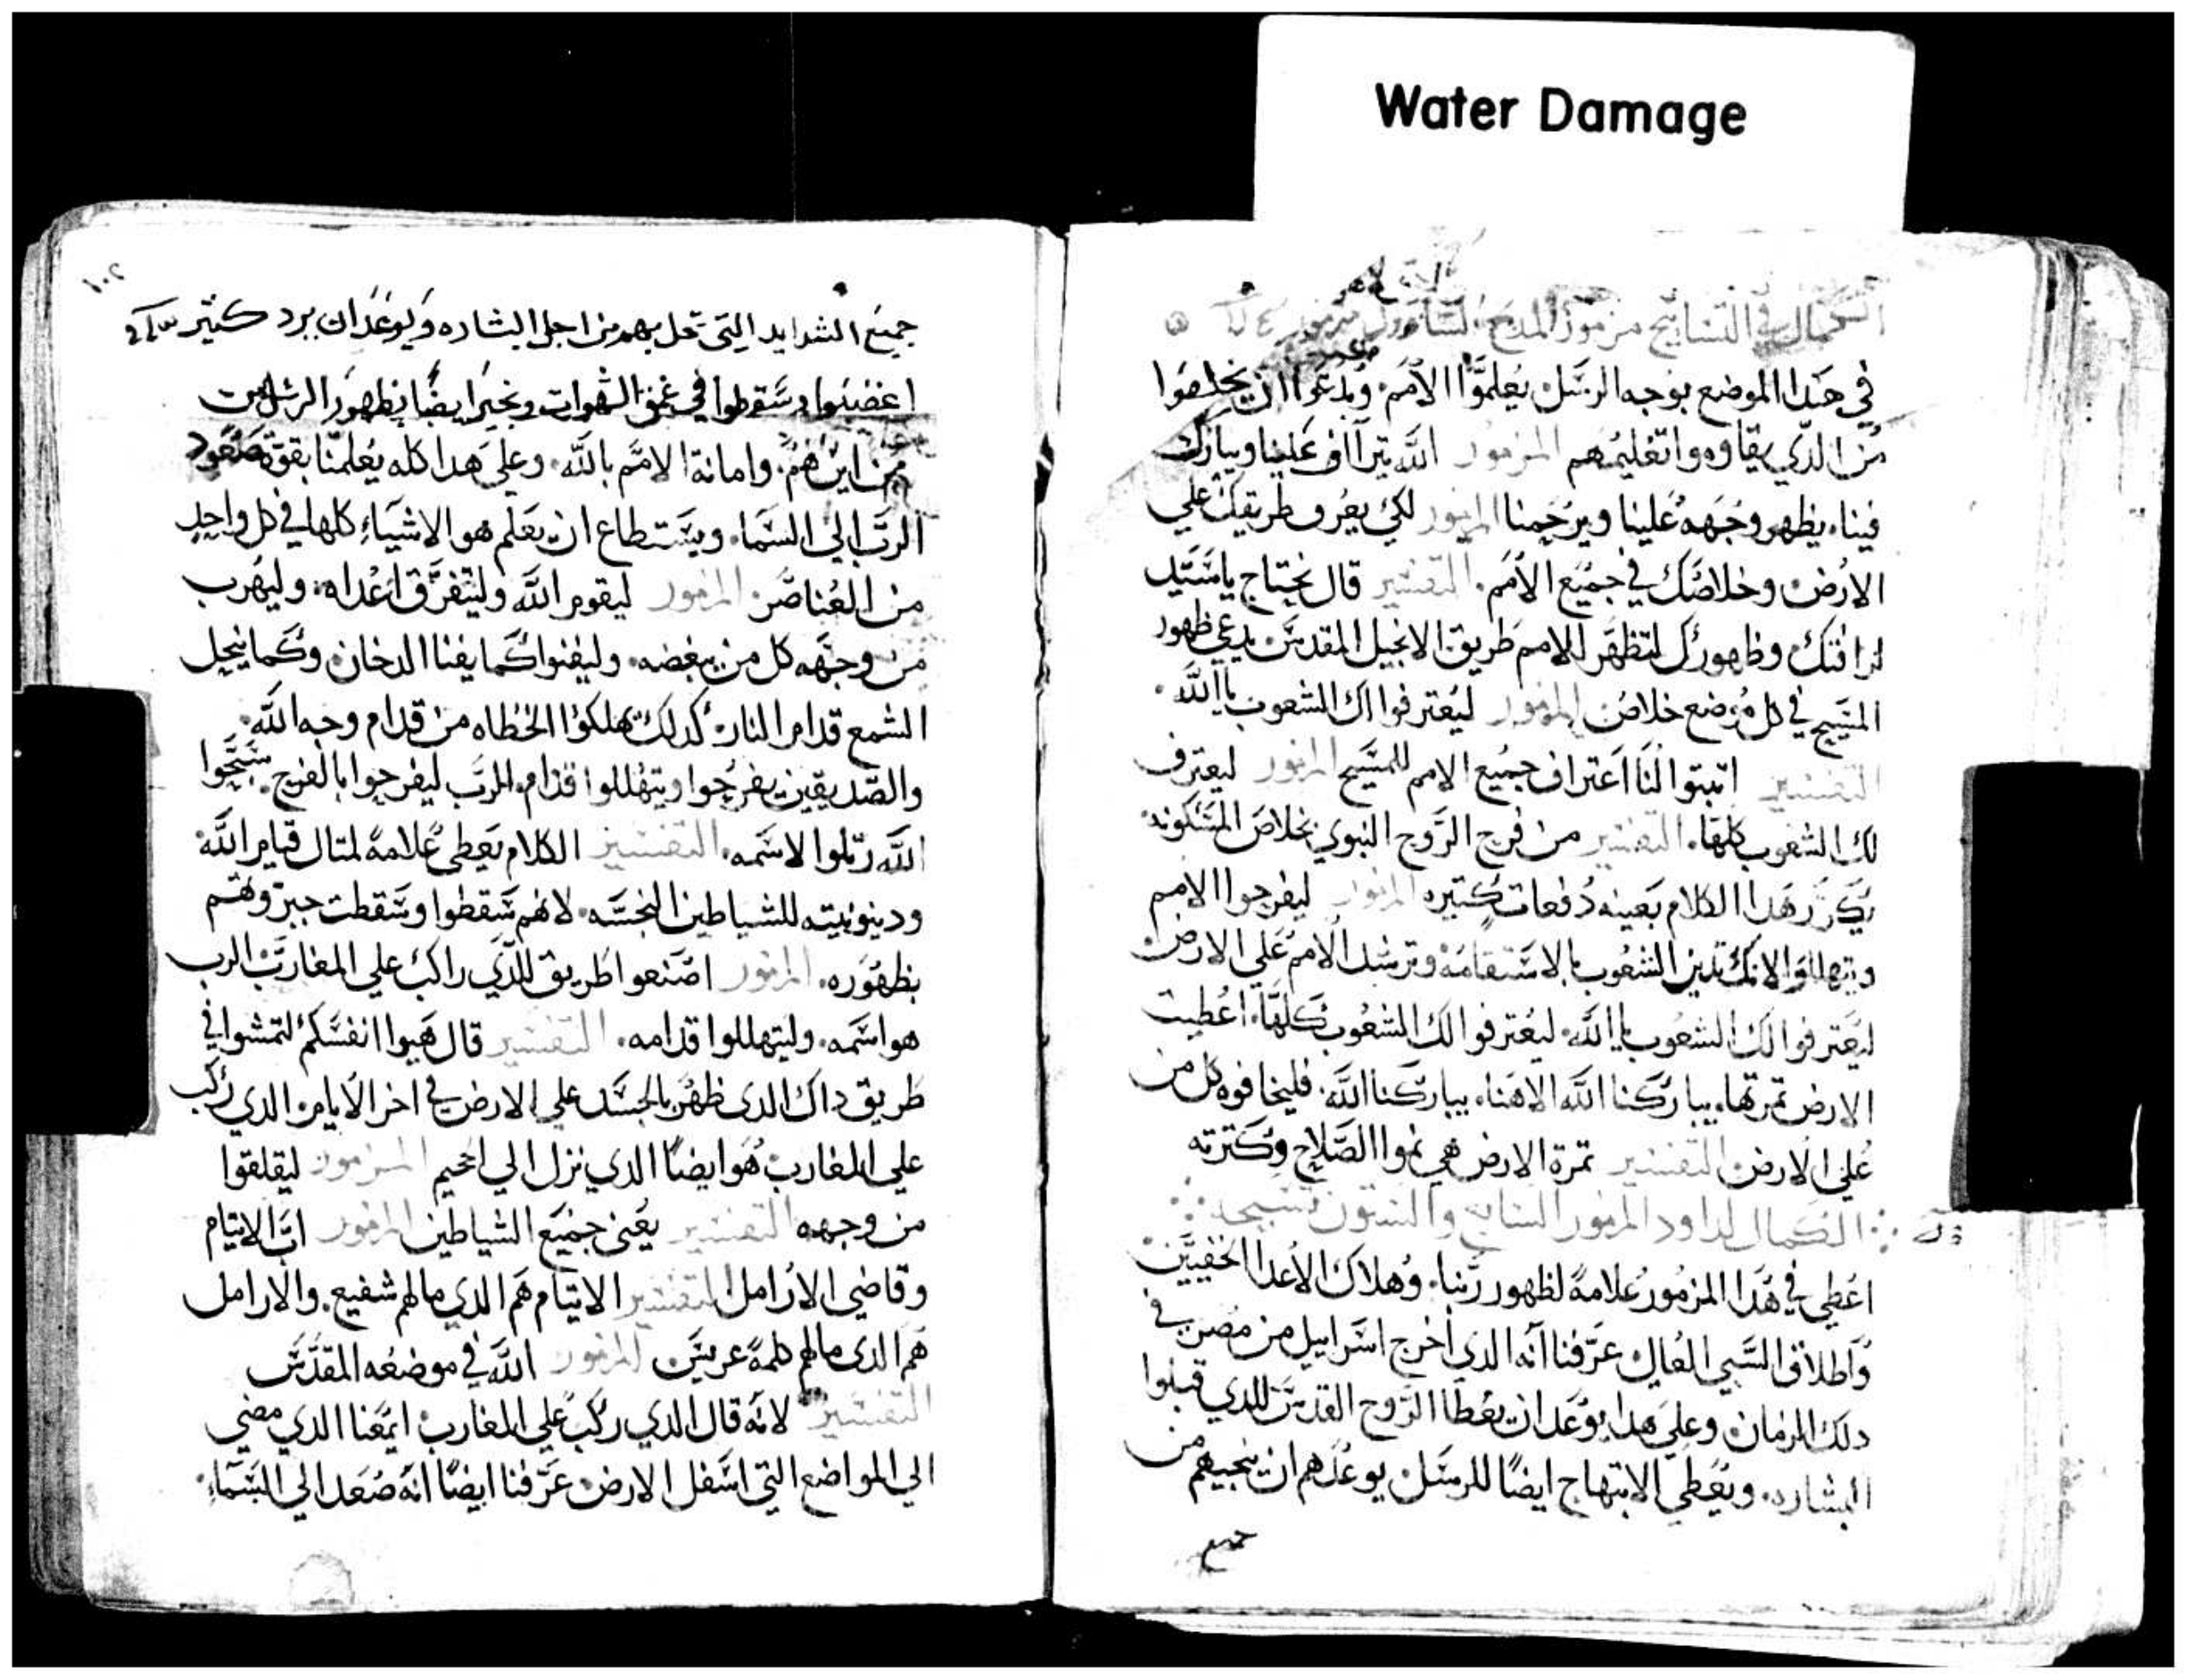 Water Damage
الكمال في التسابيح مزمور المديح
في هدا الموضع بوجه الرسل يعلموا الامم ويدعوا ان يخلصوا
من الدي يقاوموا تعليمهم المزمور الله يتراأف علينا ويبارك
فينا. يظهر وجهه علينا ويرحمنا المزمور لكي يعرف طريقك علي
الارض وخلاصك في جميع الأمم. التفسير قال نحتاج ياسيد
لرافتك وظهورك لتظهر للامم طريق الانجيل المقدس يدعي ظهور
المسيح في كل موضع خلاص المزمور ليعترفوا لك الشعوب ياالله.
التفسير اتبتوا لنا اعتراف جميع الامم للمسيح المزمور ليعترف
لك الشعوب كلها. التفسير من فرح الروح النبوي بخلاص المسكونه
يكرر هدا الكلام بعينه دفعات كتيره المزمور ليفرحوا الامم
ويتهللوا لانك تدين الشعوب بالاستقامه وترشد الامم علي الارض
ليعترفوا لك الشعوب ياالله. ليعترفوا لك الشعوب كلها. اعطيت
الارض تمرتها. يباركنا الله الاهنا. يباركنا الله. فليخافوه كل من
علي الارض التفسير تمرة الارض هي نموا الصلاح وكترته
الكمال لداود المزمور السابع والستون تسبحه
اعطي في هدا المزمور علامة لظهور ربنا. وهلاك الأعدا الخفيين
واطلاق السبي العال عرفنا انه الدي اخرج اسراييل من مصر في
دلك الزمان وعلي هدا يوعد ان يعطا الروح القدس للدي قبلوا
البشاره. ويعطي الابتهاج ايضا للرسل يوعدهم ان ينجيهم من
جميع
١٠٢
جميع الشدايد التي تحل بهم من اجل البشاره ويوعد ان يرد كتير
اغضبوا وسقطوا في عمق الشهوات ويخبر ايضا بظهور الرسل
من اين هم. وامانة الامم بالله. وعلي هدا كله يعلمنا بقوة صعود
الرب الي السما. ويستطاع ان يعلم هو الاشياء كلها في كل واحد
من العناصر المزمور ليقوم الله وليتفرق اعداه. وليهرب
من وجهه كل من يبغضه. وليفنوا كما يفنا الدخان وكما ينحل
الشمع قدام النار كدلك يهلكوا الخطاه من قدام وجه الله.
والصديقين يفرحوا ويتهللوا قدام الرب ليفرحوا بالفرح سبحوا
الله رتلوا لاسمه. التفسير الكلام يعطي علامة لمتال قيام الله
ودينونيته للشياطين النجسه. لانهم سقطوا وسقطت جبروتهم
بظهوره. المزمور اصنعوا طريق للدي راكب علي المغارب الرب
هو اسمه. وليتهللوا قدامه. التفسير قال هيوا انفسكم لتمشوا في
طريق داك الدى ظهر بالجسد علي الارض في اخر الأيام الدي ركب
علي المغارب هو ايضا الدي نزل الي الجحيم المزمور ليقلقوا
من وجهه التفسير يعني جميع الشياطين المزمور اب الايتام
وقاضي الارامل التفسير الايتام هم الدي مالهم شفيع. والارامل
هم الدى مالهم كلمة عريس المزمور الله في موضعه المقدس
التفسير لانه قال الدي ركب علي المغارب ايمعنا الدي مضي
الي المواضع التي اسفل الارض عرفنا ايضا انه صعد الي السماء.